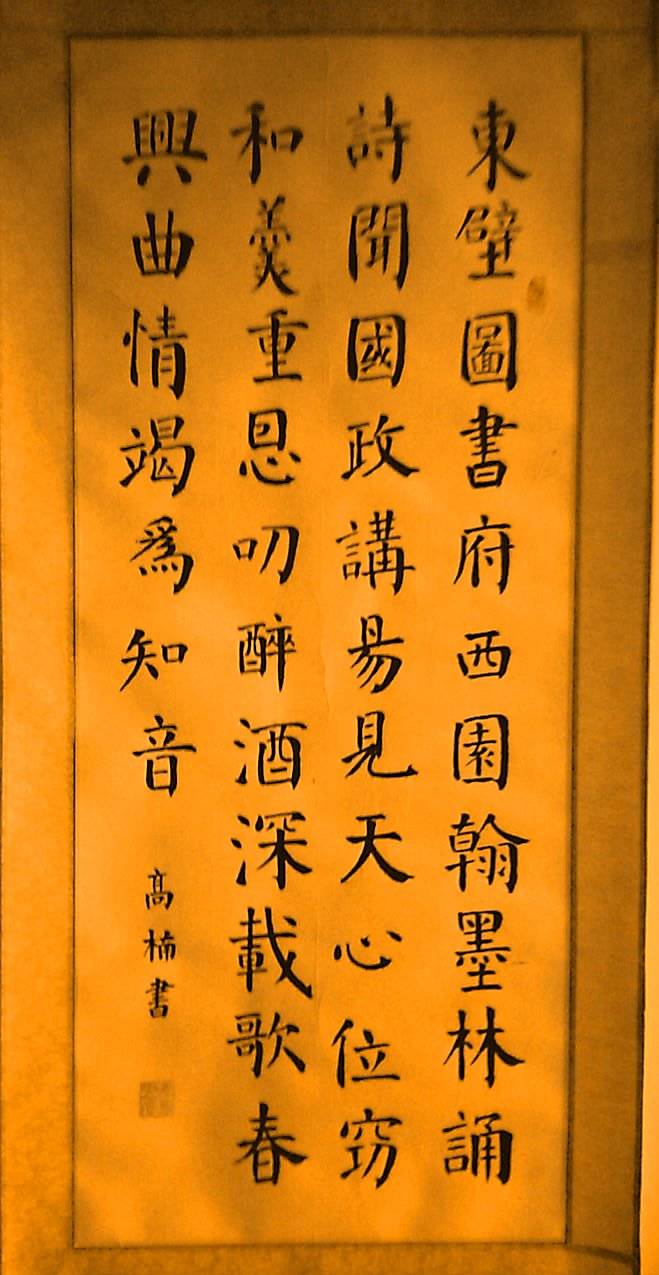 東壁圖書府西園翰墨林誦
詩聞國政講易見天心位竊
和羹重恩叨醉酒深載歌春
興曲情竭爲知音
高楠書